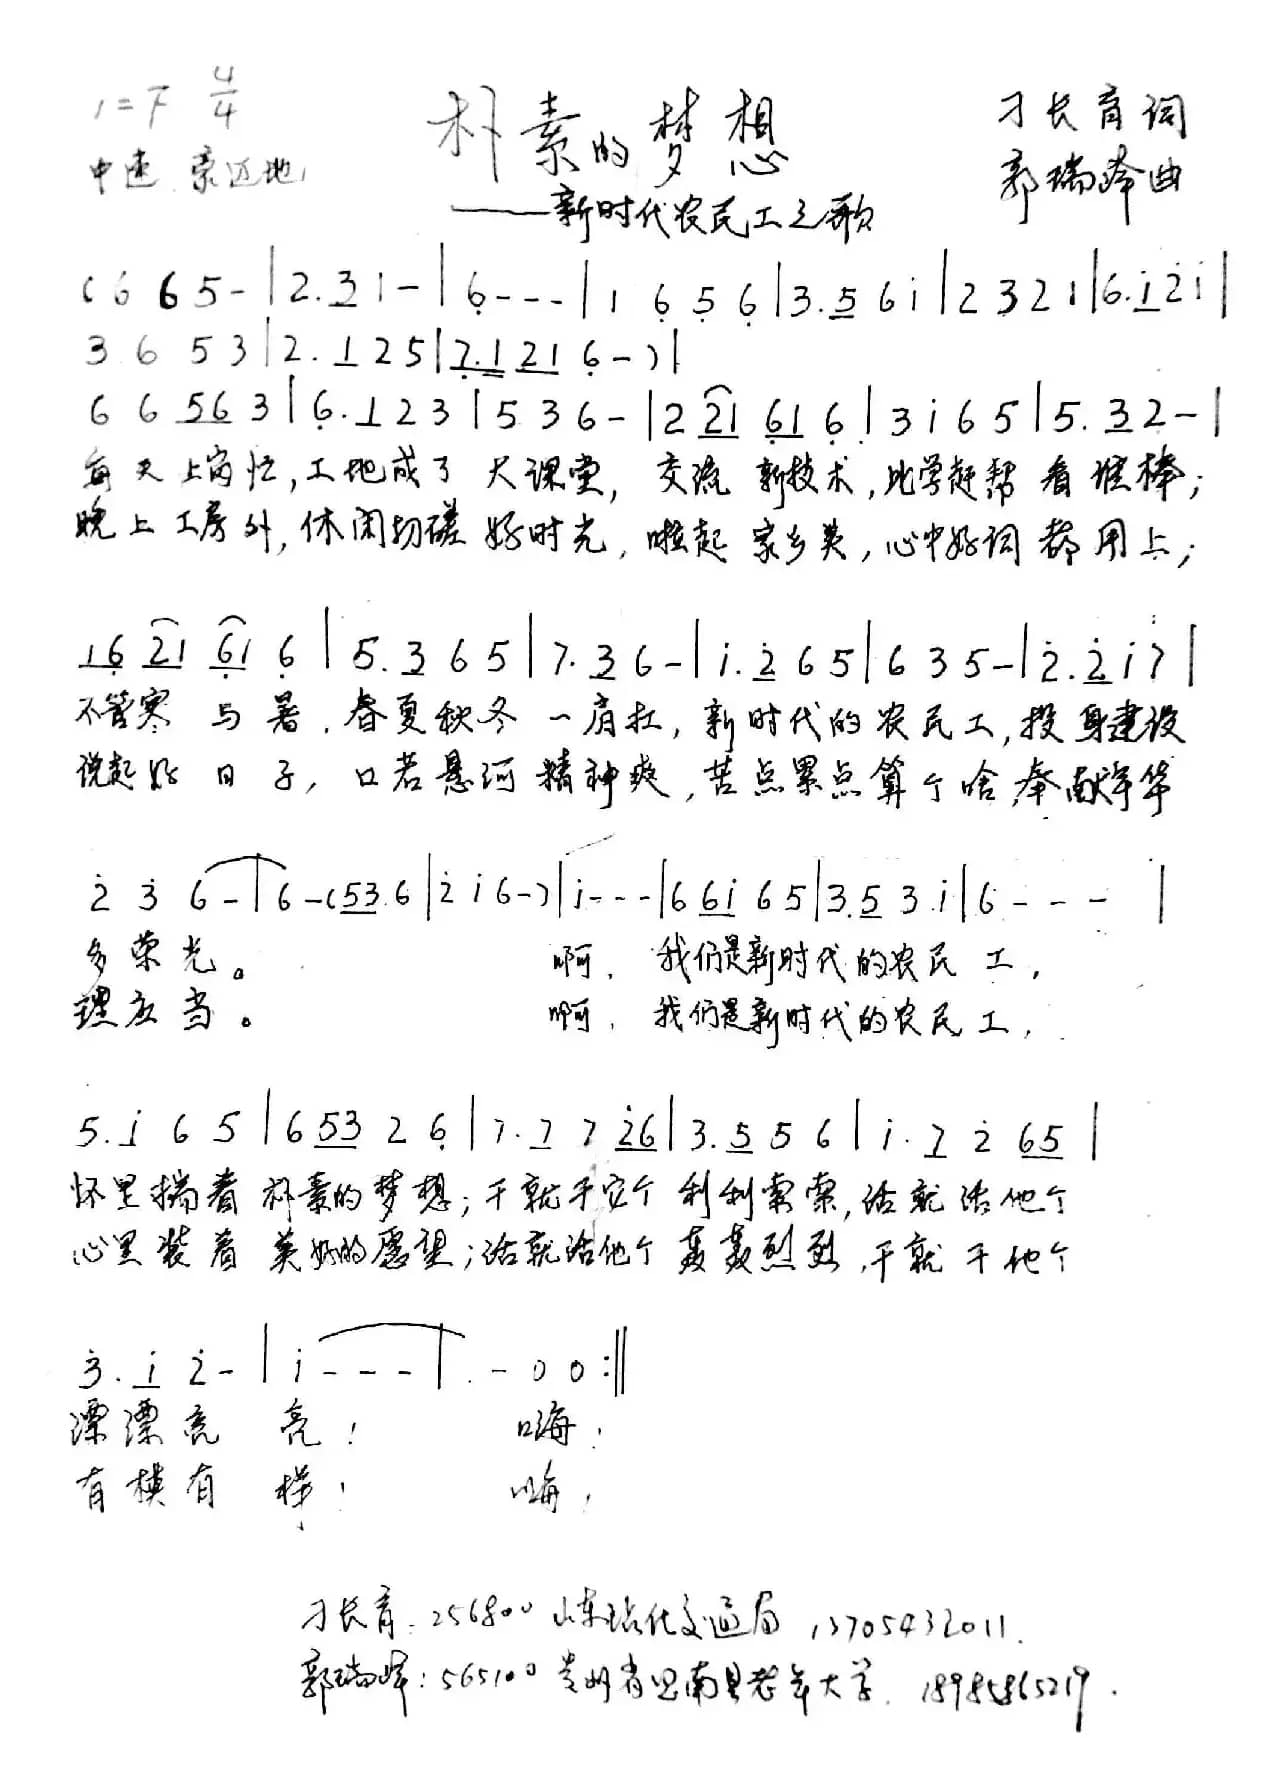 1=F 4/4
朴素的梦想
刁长育词
中速 豪迈地
——新时代农民工之歌
郭瑞峰曲
(6 6 5 - | 2. 3 1 - | 6 - - - | 1 6 5 6 | 3. 5 6 i | 2 3 2 1 | 6. i 2 i |
3 6 5 3 | 2. 1 2 5 | 7. 1 21 6 - ) |
6 6 56 3 | 6. 1 2 3 | 5 3 6 - | 2 21 61 6 | 3 i 6 5 | 5. 3 2 - |
每天上岗忙,工地成了大课堂,交流新技术,比学赶帮看谁棒;
晚上工房外,休闲切磋好时光,啦起家乡美,心中好词都用上;
16 21 61 6 | 5. 3 6 5 | 7. 3 6 - | i. 2 6 5 | 6 3 5 - | 2. 2 i 7 |
不管寒与暑,春夏秋冬一肩扛,新时代的农民工,投身建设
说起好日子,口若悬河精神爽,苦点累点算个啥,奉献年华
2 3 6 - | 6 - (53 6 | 2 i 6 - ) | i - - - | 6 6i 6 5 | 3. 5 3. i | 6 - - - |
多荣光。 啊,我们是新时代的农民工,
理应当。 啊,我们是新时代的农民工,
5. i 6 5 | 6 53 2 6 | 7. 7 7 26 | 3. 5 5 6 | i. 7 2 65 |
怀里揣着朴素的梦想;干就干它个利利索索,活就活他个
心里装着美好的愿望;活就活他个轰轰烈烈,干就干他个
3. i 2 - | i - - - | . - 0 0 :||
漂漂亮亮! 嗨!
有模有样! 嗨!
刁长育:256800 山东沾化交通局 13705432011.
郭瑞峰:565100 贵州省思南县老年大学 18985865219.